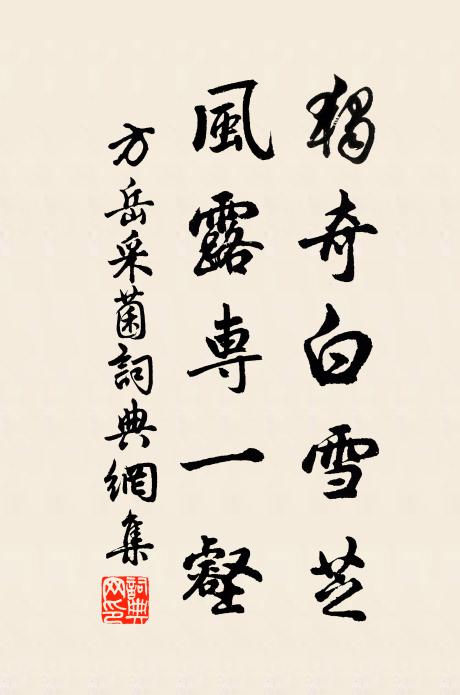 獨奇白雪芝
風露專一壑
方岳采菌詞典網集
詞典網印